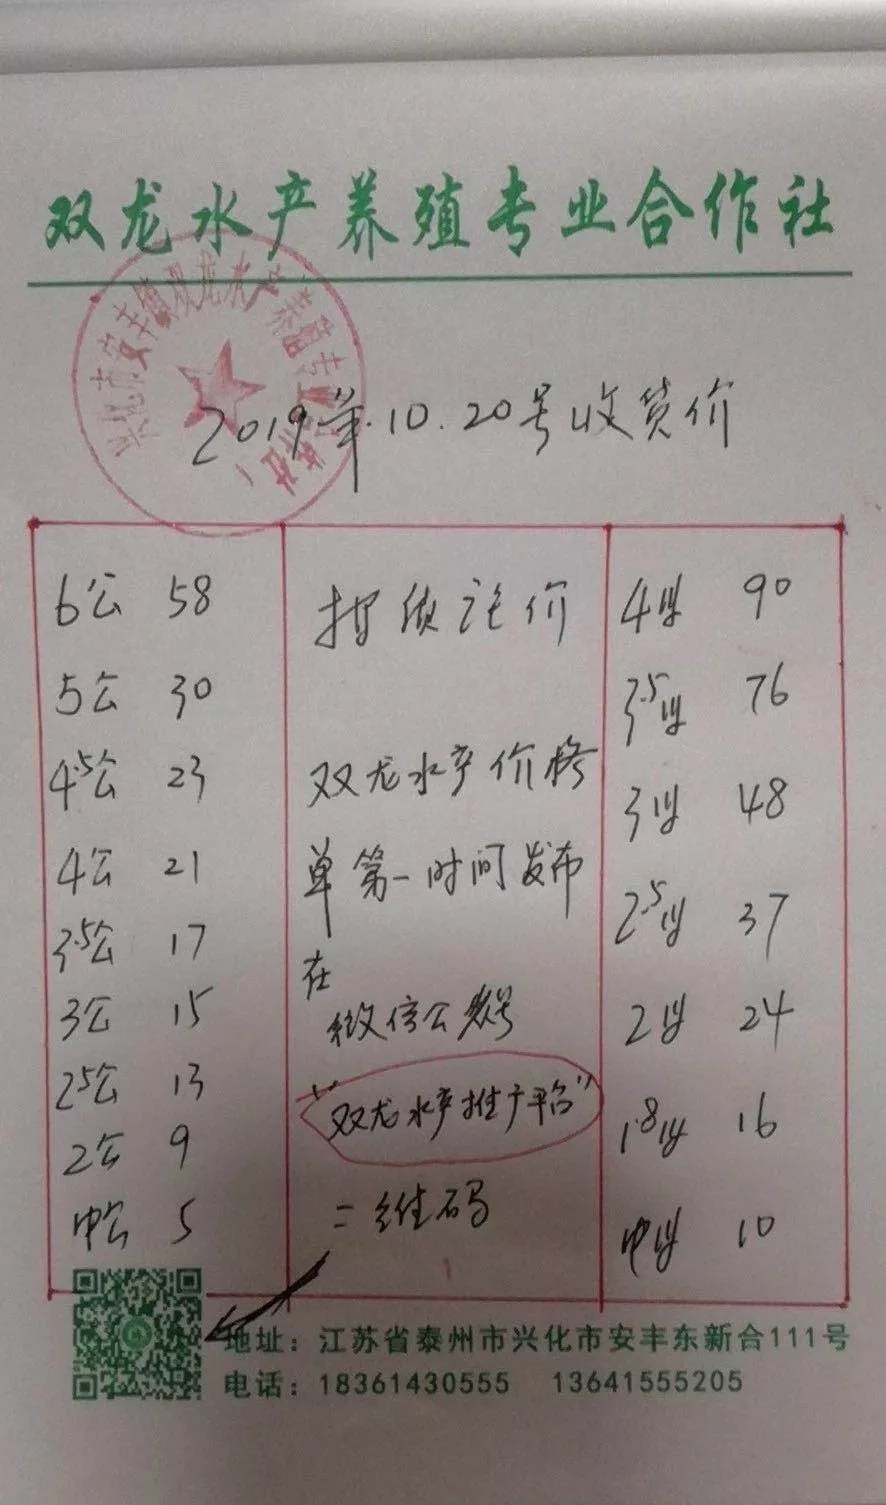 双龙水产养殖专业合作社
兴化市安丰镇双龙水产养殖专业合作社
2019年.10.20号收货价
6公 58
5公 30
4.5公 23
4公 21
3.5公 17
3公 15
2.5公 13
2公 9
中公 5
价
双龙水产价格
单第一时间发布
在
微信公众号
"双龙水产推广平台"
二维码
4母 90
3.5母 76
3母 48
2.5母 37
2母 24
1.8母 16
中母 10
地址：江苏省泰州市兴化市安丰东新合111号
电话：18361430555 13641555205